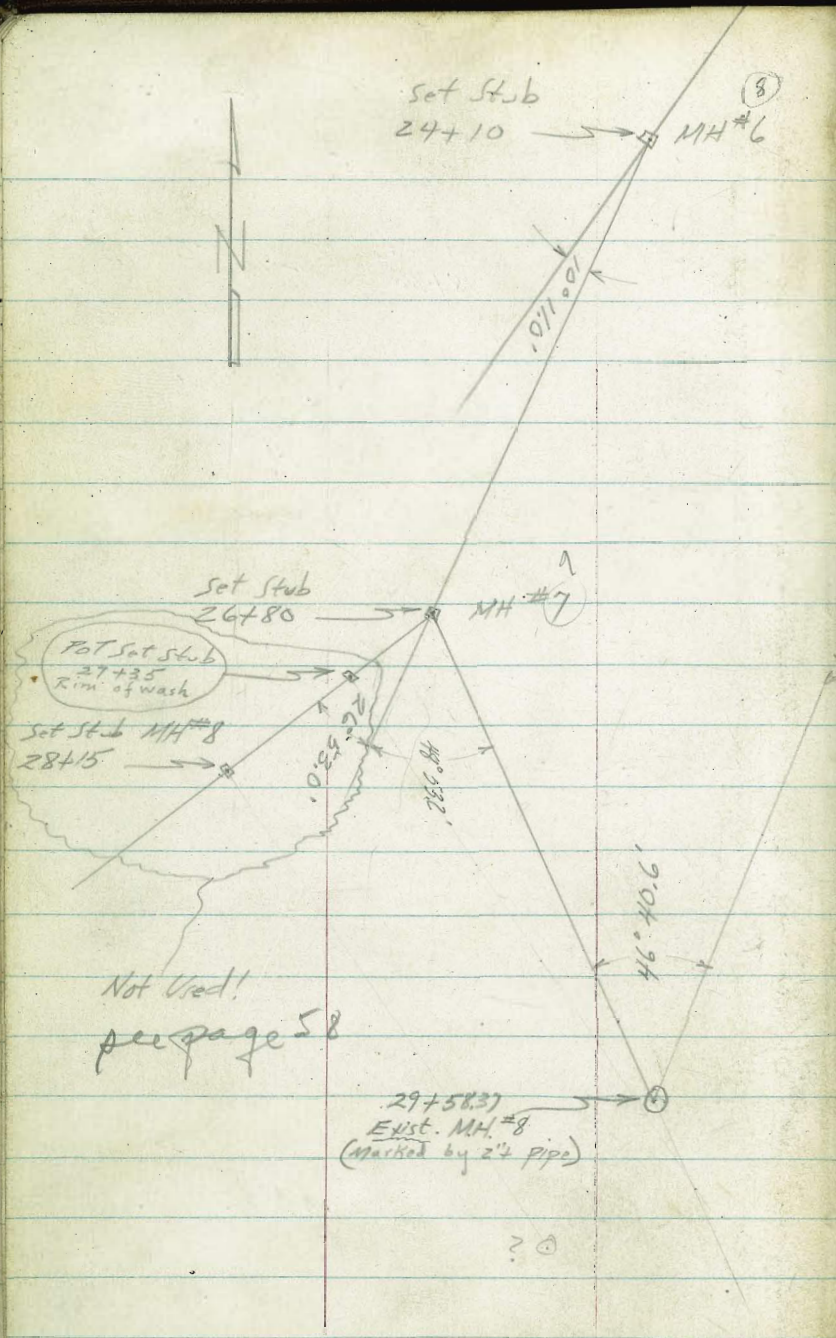 8
Set Stub
24+10
MH #6
N
10° 11.0'
Set Stub
26+80
MH #7
?
POT Set Stub
27+35
Rim of wash
Set Stub MH #8
28+15
26° 53.0'
44° 53.2'
46° 40.6'
Not Used!
see page 58
29+58.37
Exist. M.H. #8
(Marked by 2"± pipe)
?